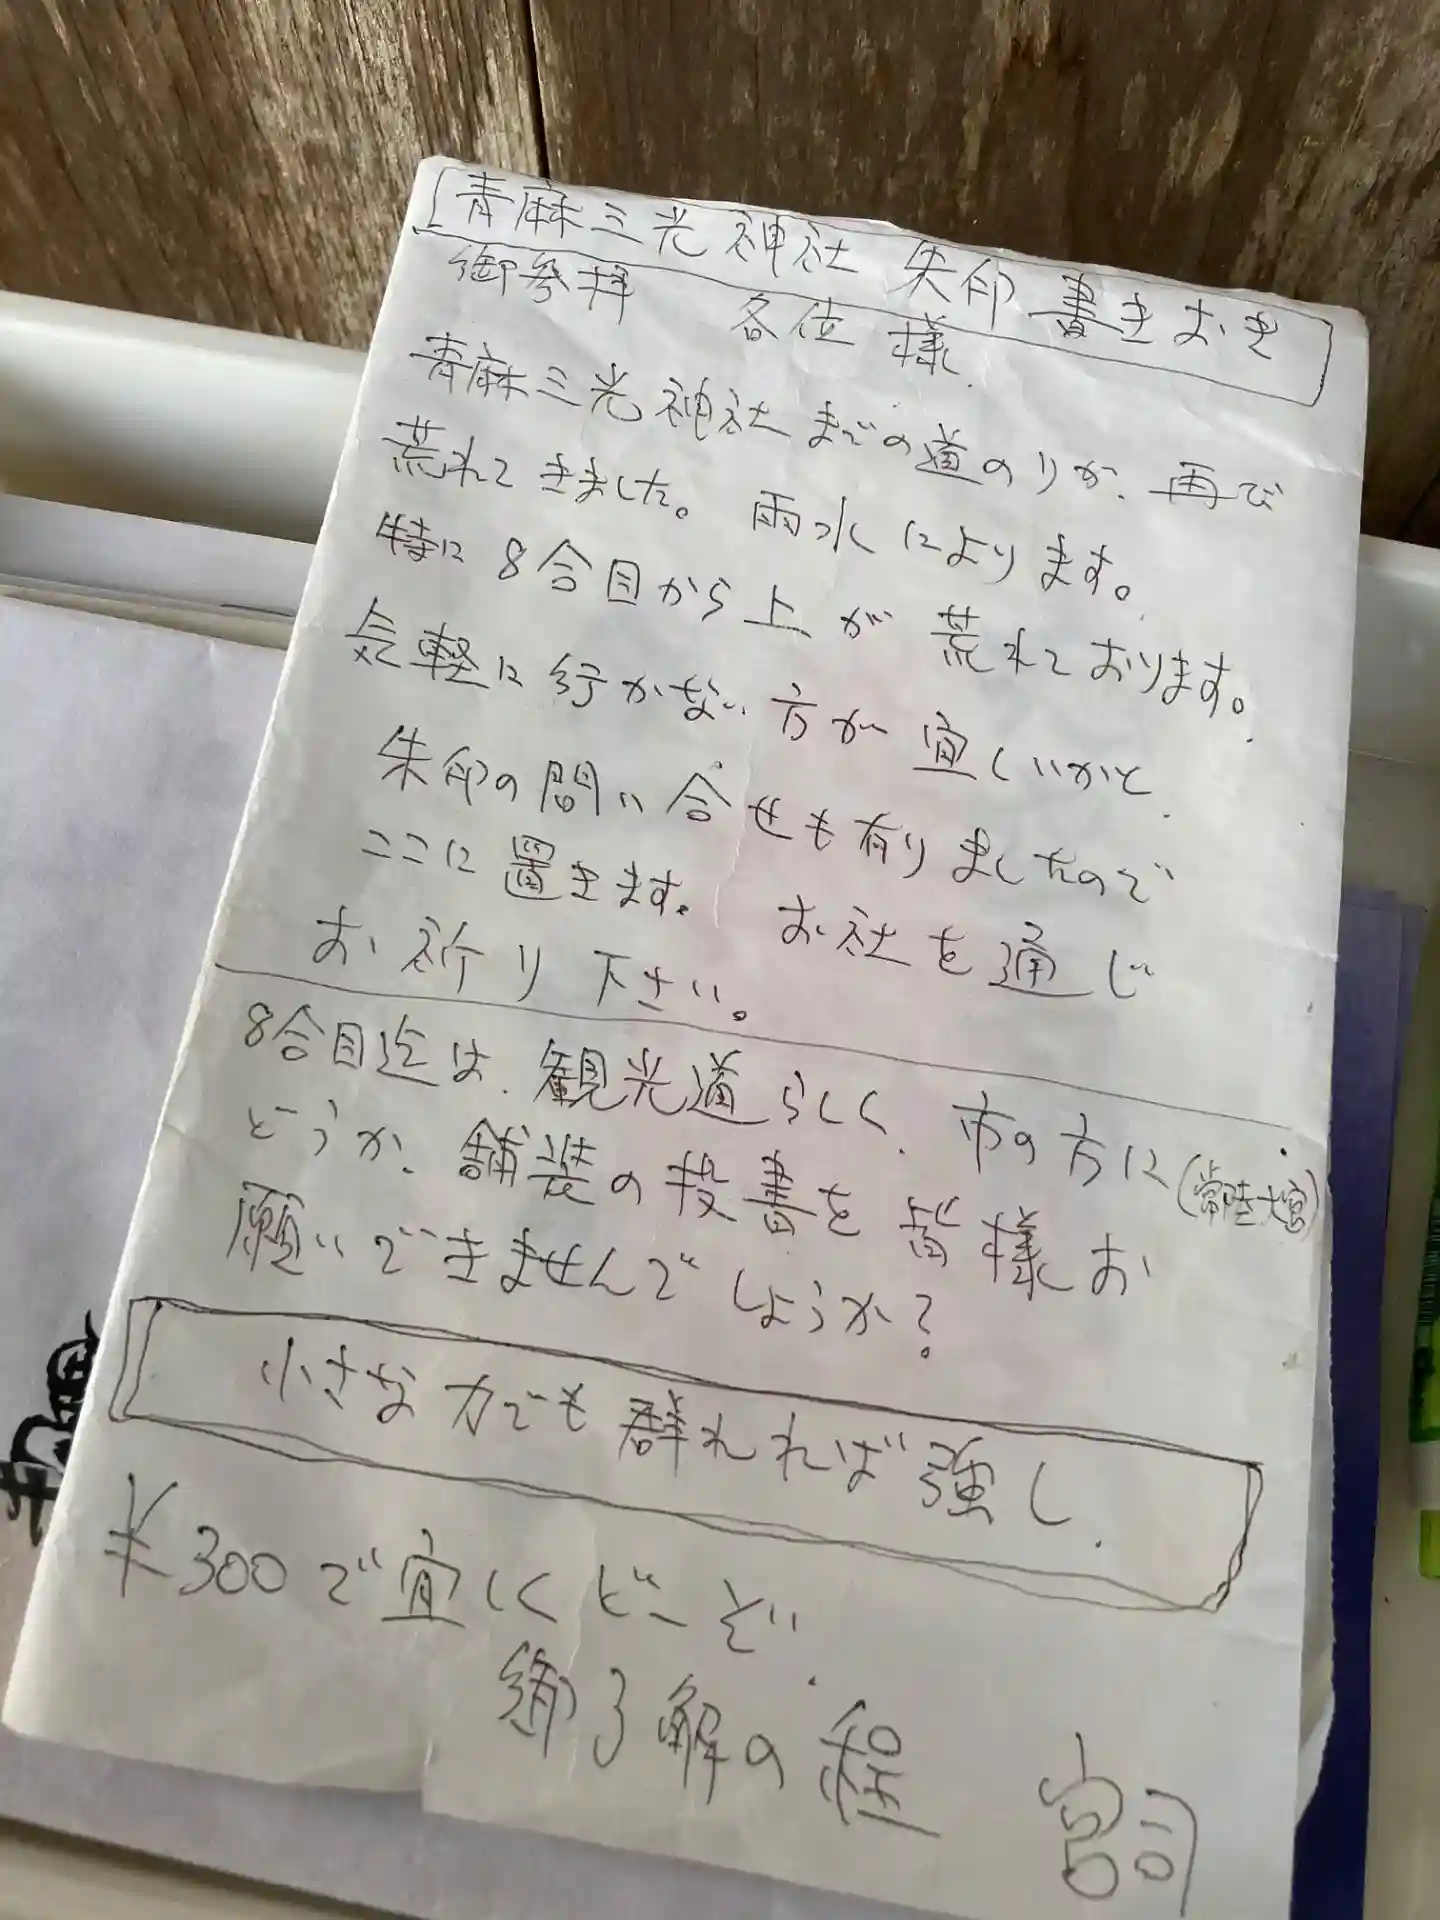 青麻三光神社 朱印書きおき
御参拝 各位様.
青麻三光神社までの道のりが、再び
荒れてきました。雨水によります。
特に8合目から上が荒れております。
気軽に行かない方が宜しいかと.
朱印の問い合せも有りましたので
ここに置きます。お社を通じ
お祈り下さい。
8合目迄は、観光道らしく、市の方に(常陸大宮)
どうか、舗装の投書を皆様お
願いできませんでしょうか?
小さな力でも群れれば強し.
¥300で宜しくどーぞ.
御了解の程 宮司